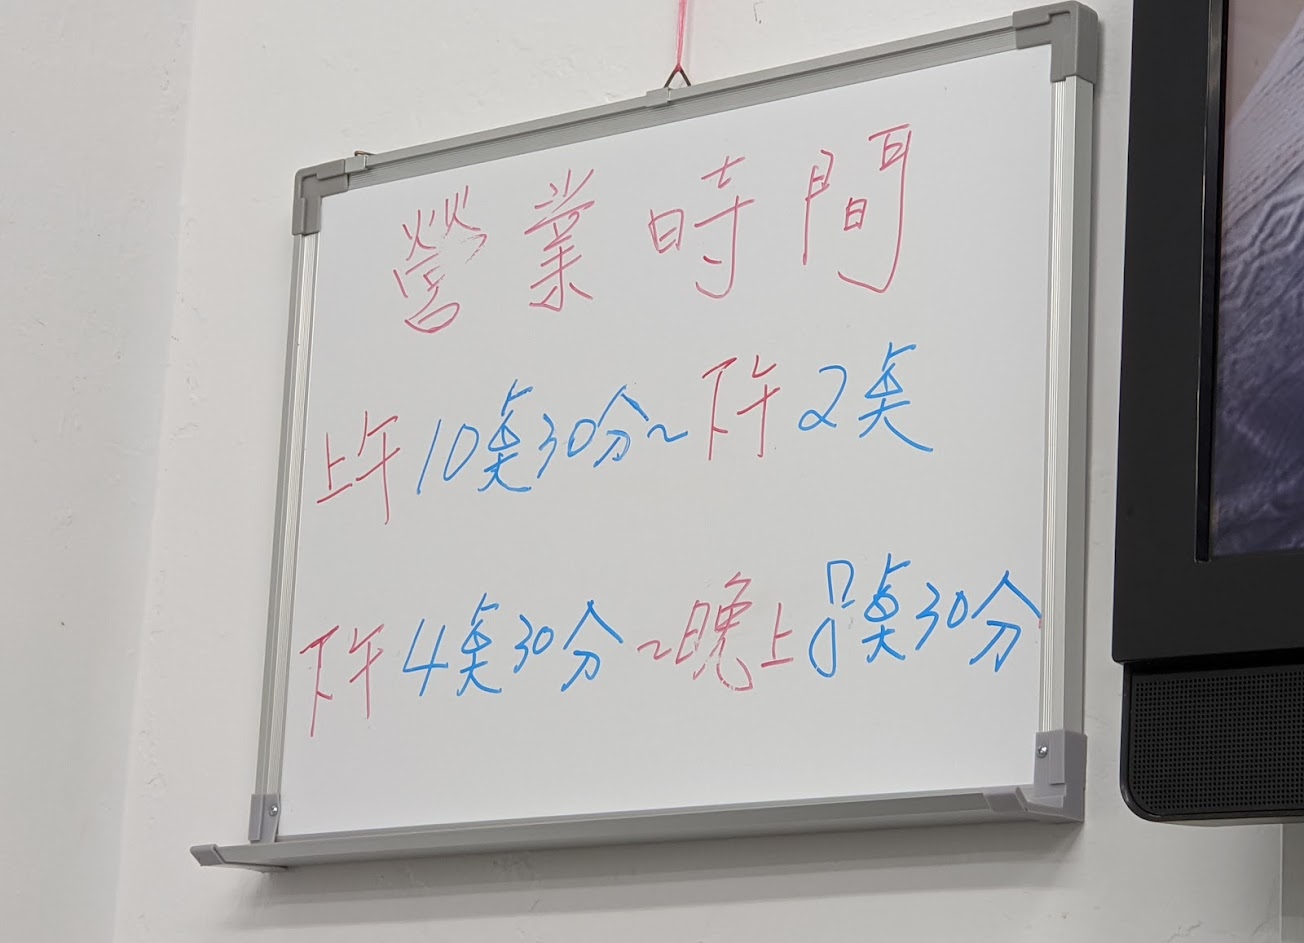 營業時間
上午10點30分~下午2點
下午4點30分~晚上8點30分